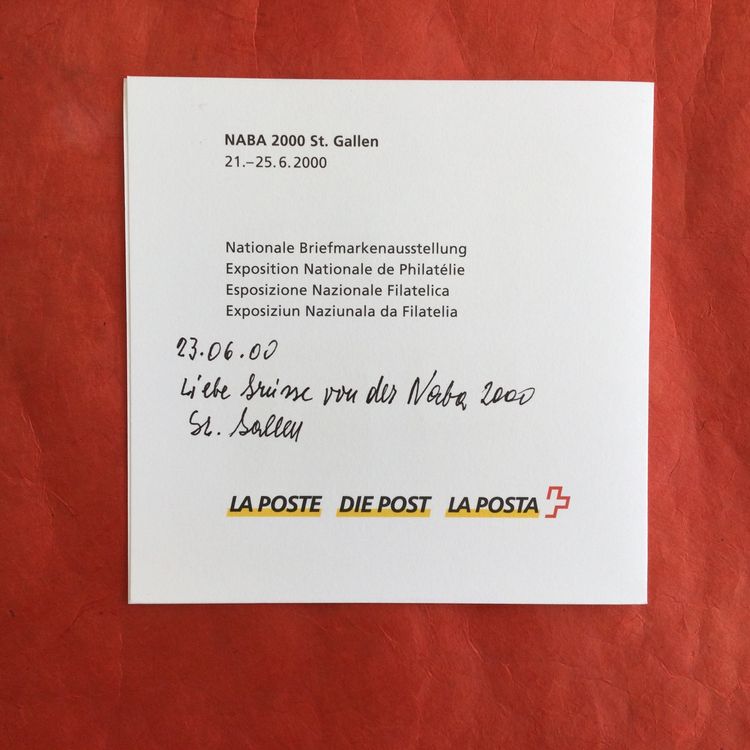 NABA 2000 St. Gallen
21.–25.6.2000
Nationale Briefmarkenausstellung
Exposition Nationale de Philatélie
Esposizione Nazionale Filatelica
Exposiziun Naziunala da Filatelia
23.06.00
Liebe Grüsse von der Naba 2000
St. Gallen
LA POSTE DIE POST LA POSTA